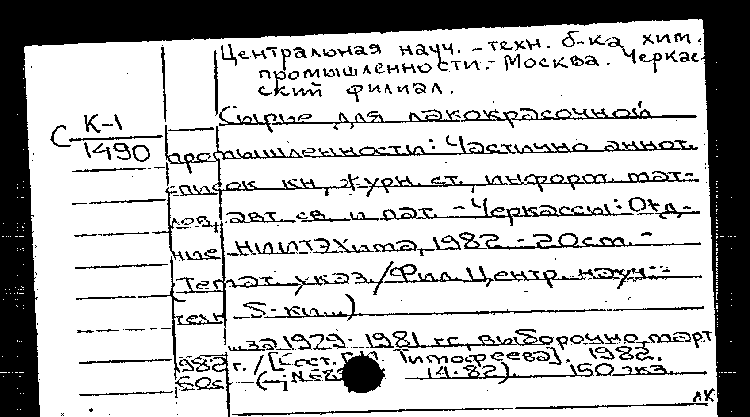 Центральная науч.-техн. б-ка хим.
промышленности.- Москва. Черкас-
ский филиал.
Сырье для лакокрасочной
С К-1
1490
промышленности: Частично аннот.
список кн., журн. ст., информ. мат-
лов, авт. св. и пат. - Черкассы: Отд-
ние НИИТЭХима, 1982 - 20см. -
(Темат. указ. / Фил. Центр. науч.-
техн. б-ки...)
...за 1979-1981 гг., выборочно, март
1982 г. / [Сост. Тимофеева]. 1982.
60с (-; 14-82). 150 экз.
ЛК